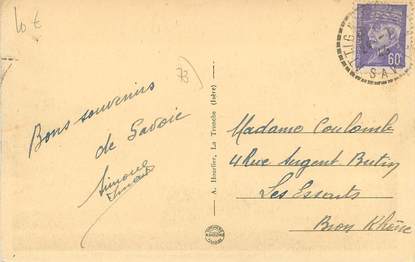 10 €
73
Bons souvenirs
de Savoie
Simone
A. Hourlier, La Tronche (Isère)
60
TIG
SA
Madame Coulomb
4 Rue Sergent
Les Essarts
Bron Rhône